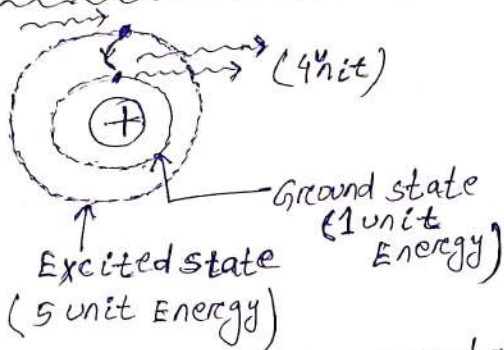 (4unit)
+
Ground state
(1 unit
Energy)
Excited state
(5 unit Energy)